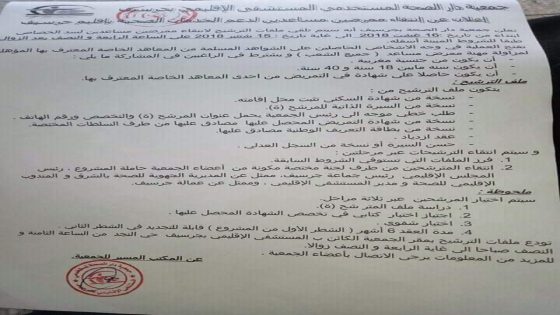 جمعية دار الصحة لمستخدمي المستشفى الإقليمي بجرسيف
إعلان عن إنتقاء ممرضين مساعدين لدعم الخدمات الصحية بإقليم جرسيف
تعلن جمعية دار الصحة بجرسيف أنه سيتم تلقي ملفات الترشيح لإنتقاء ممرضين مساعدين لسد الخصاص
ابتداء من تاريخ : 2018 إلى غاية تاريخ : 2018 على الساعة الرابعة و النصف بعد الزوال
طبقا للشروط المبينة أسفله
يفتح العملية في وجه الأشخاص الحاصلين على الشواهد المسلمة من المعاهد الخاصة المعترف بها المؤهلة
لمزاولة مهنة ممرض مساعد ( جميع الشعب ) و يشترط في الراغبين في المشاركة ما يلي :
- أن يكون من جنسية مغربية .
- أن يكون سنه مابين 18 سنة و 40 سنة.
- أن يكون حاصلا على شهادة في التمريض من احدى المعاهد الخاصة المعترف بها.
ملف الترشيح :
يتكون ملف الترشيح من :
- نسخة من شهادة السكنى تثبت محل إقامته.
- نسخة من السيرة الذاتية للمرشح (ة).
- طلب خطي موجه الى رئيس الجمعية يحمل عنوان المرشح (ة) والتخصص ورقم الهاتف .
- نسخة من شهادة التمريض المحصل عليها مصادق عليها من طرف السلطات المختصة.
- نسخة من بطاقة التعريف الوطنية مصادق عليها.
- عقد ازدياد .
- حسن السيرة أو نسخة من السجل العدلي .
و سيتم انتقاء الترشيحات عبر مرحلتين :
1. فرز الملفات التي تستوفي الشروط السابقة.
2. انتقاء المترشحين من طرف لجنة مختصة مكونة من أعضاء الجمعية حاملة المشروع , رئيس
المجلس الإقليمي , رئيس جماعة جرسيف, ممثل عن المديرية الجهوية للصحة بالشرق و المندوب
الإقليمي للصحة و مدير المستشفى الإقليمي , وممثل عن عمالة جرسيف.
ملحوظة :
سيتم اختيار المرشحين عبر ثلاثة مراحل.
1. دراسة ملف المترشح (ة).
2. اجتياز اختبار كتابي في تخصص الشهادة المحصل عليها.
3. اختبار شفوي.
4. مدة العقد 6 أشهر ( الشطر الأول من المشروع ) قابلة للتجديد في الشطر الثاني .
تودع ملفات الترشيح بمقر الجمعية الكائن ب المستشفى الإقليمي بجرسيف حي النجد من الساعة الثامنة و
النصف صباحا الى غاية الرابعة و النصف زوالا.
للمزيد من المعلومات يرجى الاتصال بأعضاء الجمعية .
عن المكتب المسير للجمعية.